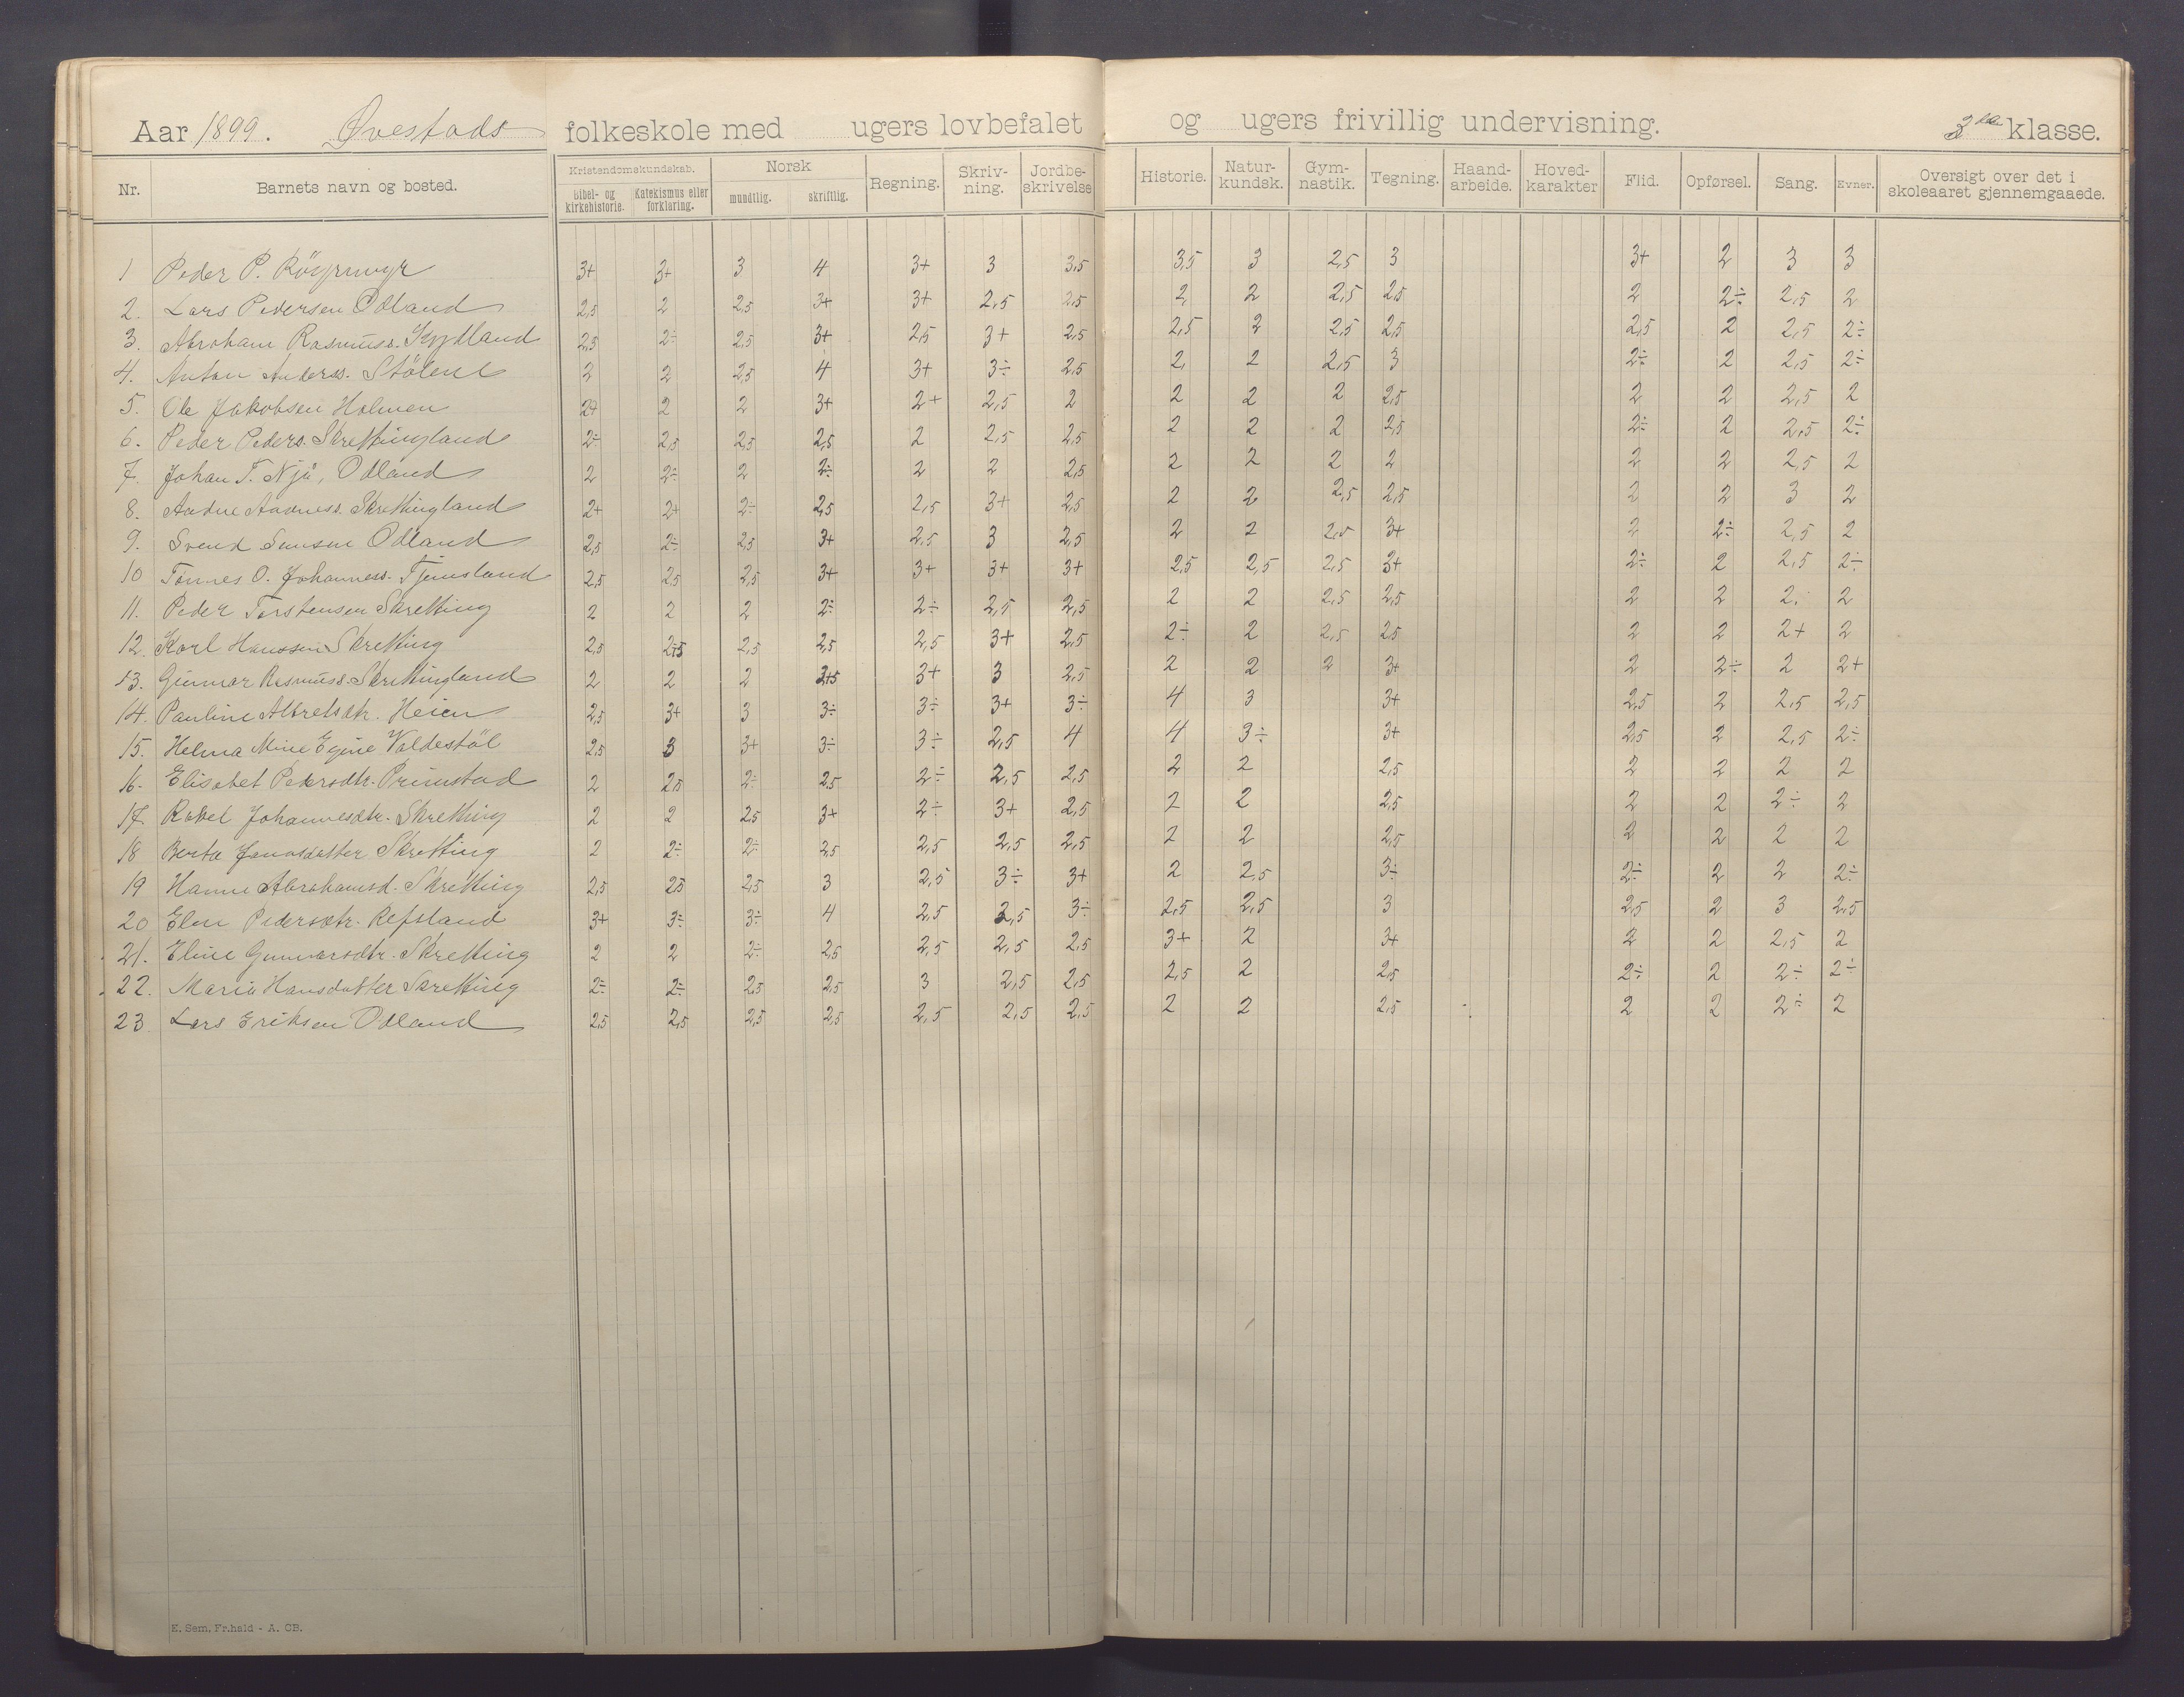 Aar 1899. Øvestads folkeskole med ugers lovbefalet og ugers frivillig undervisning. 3die klasse.
Nr. Barnets navn og bosted. Kristendomskundskab. Norsk Regning. Skriv-ning. Jordbe-skrivelse Historie. Natur-kundsk. Gym-nastik. Tegning. Haand-arbeide. Hoved-karakter Flid. Opførsel. Sang. Evner. Oversigt over det i skoleaaret gjennemgaaede.
Bibel- og kirkehistorie. Katekismus eller forklaring. mundtlig. skriftlig.
1 Peder P. 3+ 3+ 3 4 3+ 3 3,5 3,5 3 2,5 3 3+ 2 3 3
2. Lars Pedersen Odland 2,5 2 2,5 3+ 3+ 2,5 2,5 2, 2 2,5 2,5 2 2÷ 2,5 2
3. Abraham Rasmuss. 2,5 2÷ 2,5 3+ 2,5 3+ 2,5 2,5 2 2,5 2,5 2,5 2 2,5 2÷
4. Anton Anderss. Stölene 2 2 2,5 4 3+ 3÷ 2,5 2, 2 2,5 3 2÷ 2 2,5 2÷
5. Ole Jakobsen Holmen 2+ 2 2 3+ 2+ 2,5 2 2 2 2 2,5 2 2 2,5 2
6. Peder Peders. Skrettingland 2÷ 2,5 2,5 2,5 2 2,5 2,5 2 2 2 2,5 2÷ 2 2,5 2÷
7. Johan T. Njå, Odland 2 2÷ 2 2÷ 2 2 2,5 2 2 2 2 2 2 2,5 2
8. Aadne Aadness. Skrettingland 2+ 2+ 2÷ 2,5 2,5 3+ 2,5 2 2 2,5 2,5 2 2 3 2
9. Svend Sensen Odland 2,5 2÷ 2,5 3+ 2,5 3 2,5 2 2 2,5 3+ 2 2÷ 2,5 2
10 Tønnes O. Johanness. Tjemsland 2,5 2,5 2,5 3+ 3+ 3+ 3+ 2,5 2,5 2,5 3+ 2÷ 2 2,5 2÷
11. Peder Torstensen Skretting 2 2 2 2÷ 2÷ 2,5 2,5 2 2 2,5 2,5 2 2 2. 2
12. Karl Hanssen Skretting 2,5 2,5 2,5 2,5 2,5 3+ 2,5 2÷ 2 2,5 2,5 2 2 2+ 2
13. Gunnar Rasmuss. Skrettingland 2 2 2 2,5 3+ 3 2,5 2 2 2 3+ 2 2÷ 2 2+
14. Pauline Albretsdtr. Heien 2,5 3+ 3 3÷ 3÷ 3+ 3÷ 4 3 3+ 2,5 2 2,5 2,5
15. Helma Mine Egine Valdestöl 2,5 3 3+ 3÷ 3÷ 2,5 4 4 3÷ 3+ 2,5 2 2,5 2÷
16. Elisabet Pedersdtr. Primstad 2 2,5 2÷ 2,5 2÷ 2,5 2,5 2 2 2,5 2 2 2 2
17. Rakel Johannesdtr. Skretting 2 2 2,5 3+ 2÷ 3+ 2,5 2 2 2,5 2 2 2÷ 2
18 Berta Jonasdatter Skretting 2 2÷ 2÷ 2,5 2,5 2,5 2,5 2 2 2,5 2 2 2 2
19 Hanne Abrahamsd. Skretting 2,5 2,5 2,5 3 2,5 3÷ 3+ 2 2,5 3÷ 2÷ 2 2 2÷
20 Elen Pedersdtr. Refsland 3+ 3÷ 3÷ 4 2,5 2,5 3÷ 2,5 2,5 3 2,5 2 3 2,5
21. Eline Gunnarsdtr. Skretting 2 2 2÷ 2,5 2,5 2,5 2,5 3+ 2 3+ 2 2 2,5 2
22. Maria Hansdatter Skretting 2÷ 2÷ 2,5 2,5 3 2,5 2,5 2,5 2 2,5 2÷ 2 2÷ 2÷
23 Lars Eriksen Odland 2,5 2,5 2,5 2,5 2,5 2,5 2,5 2 2 2,5 2 2 2÷ 2
E. Sem, Fr.hald - A. CB.